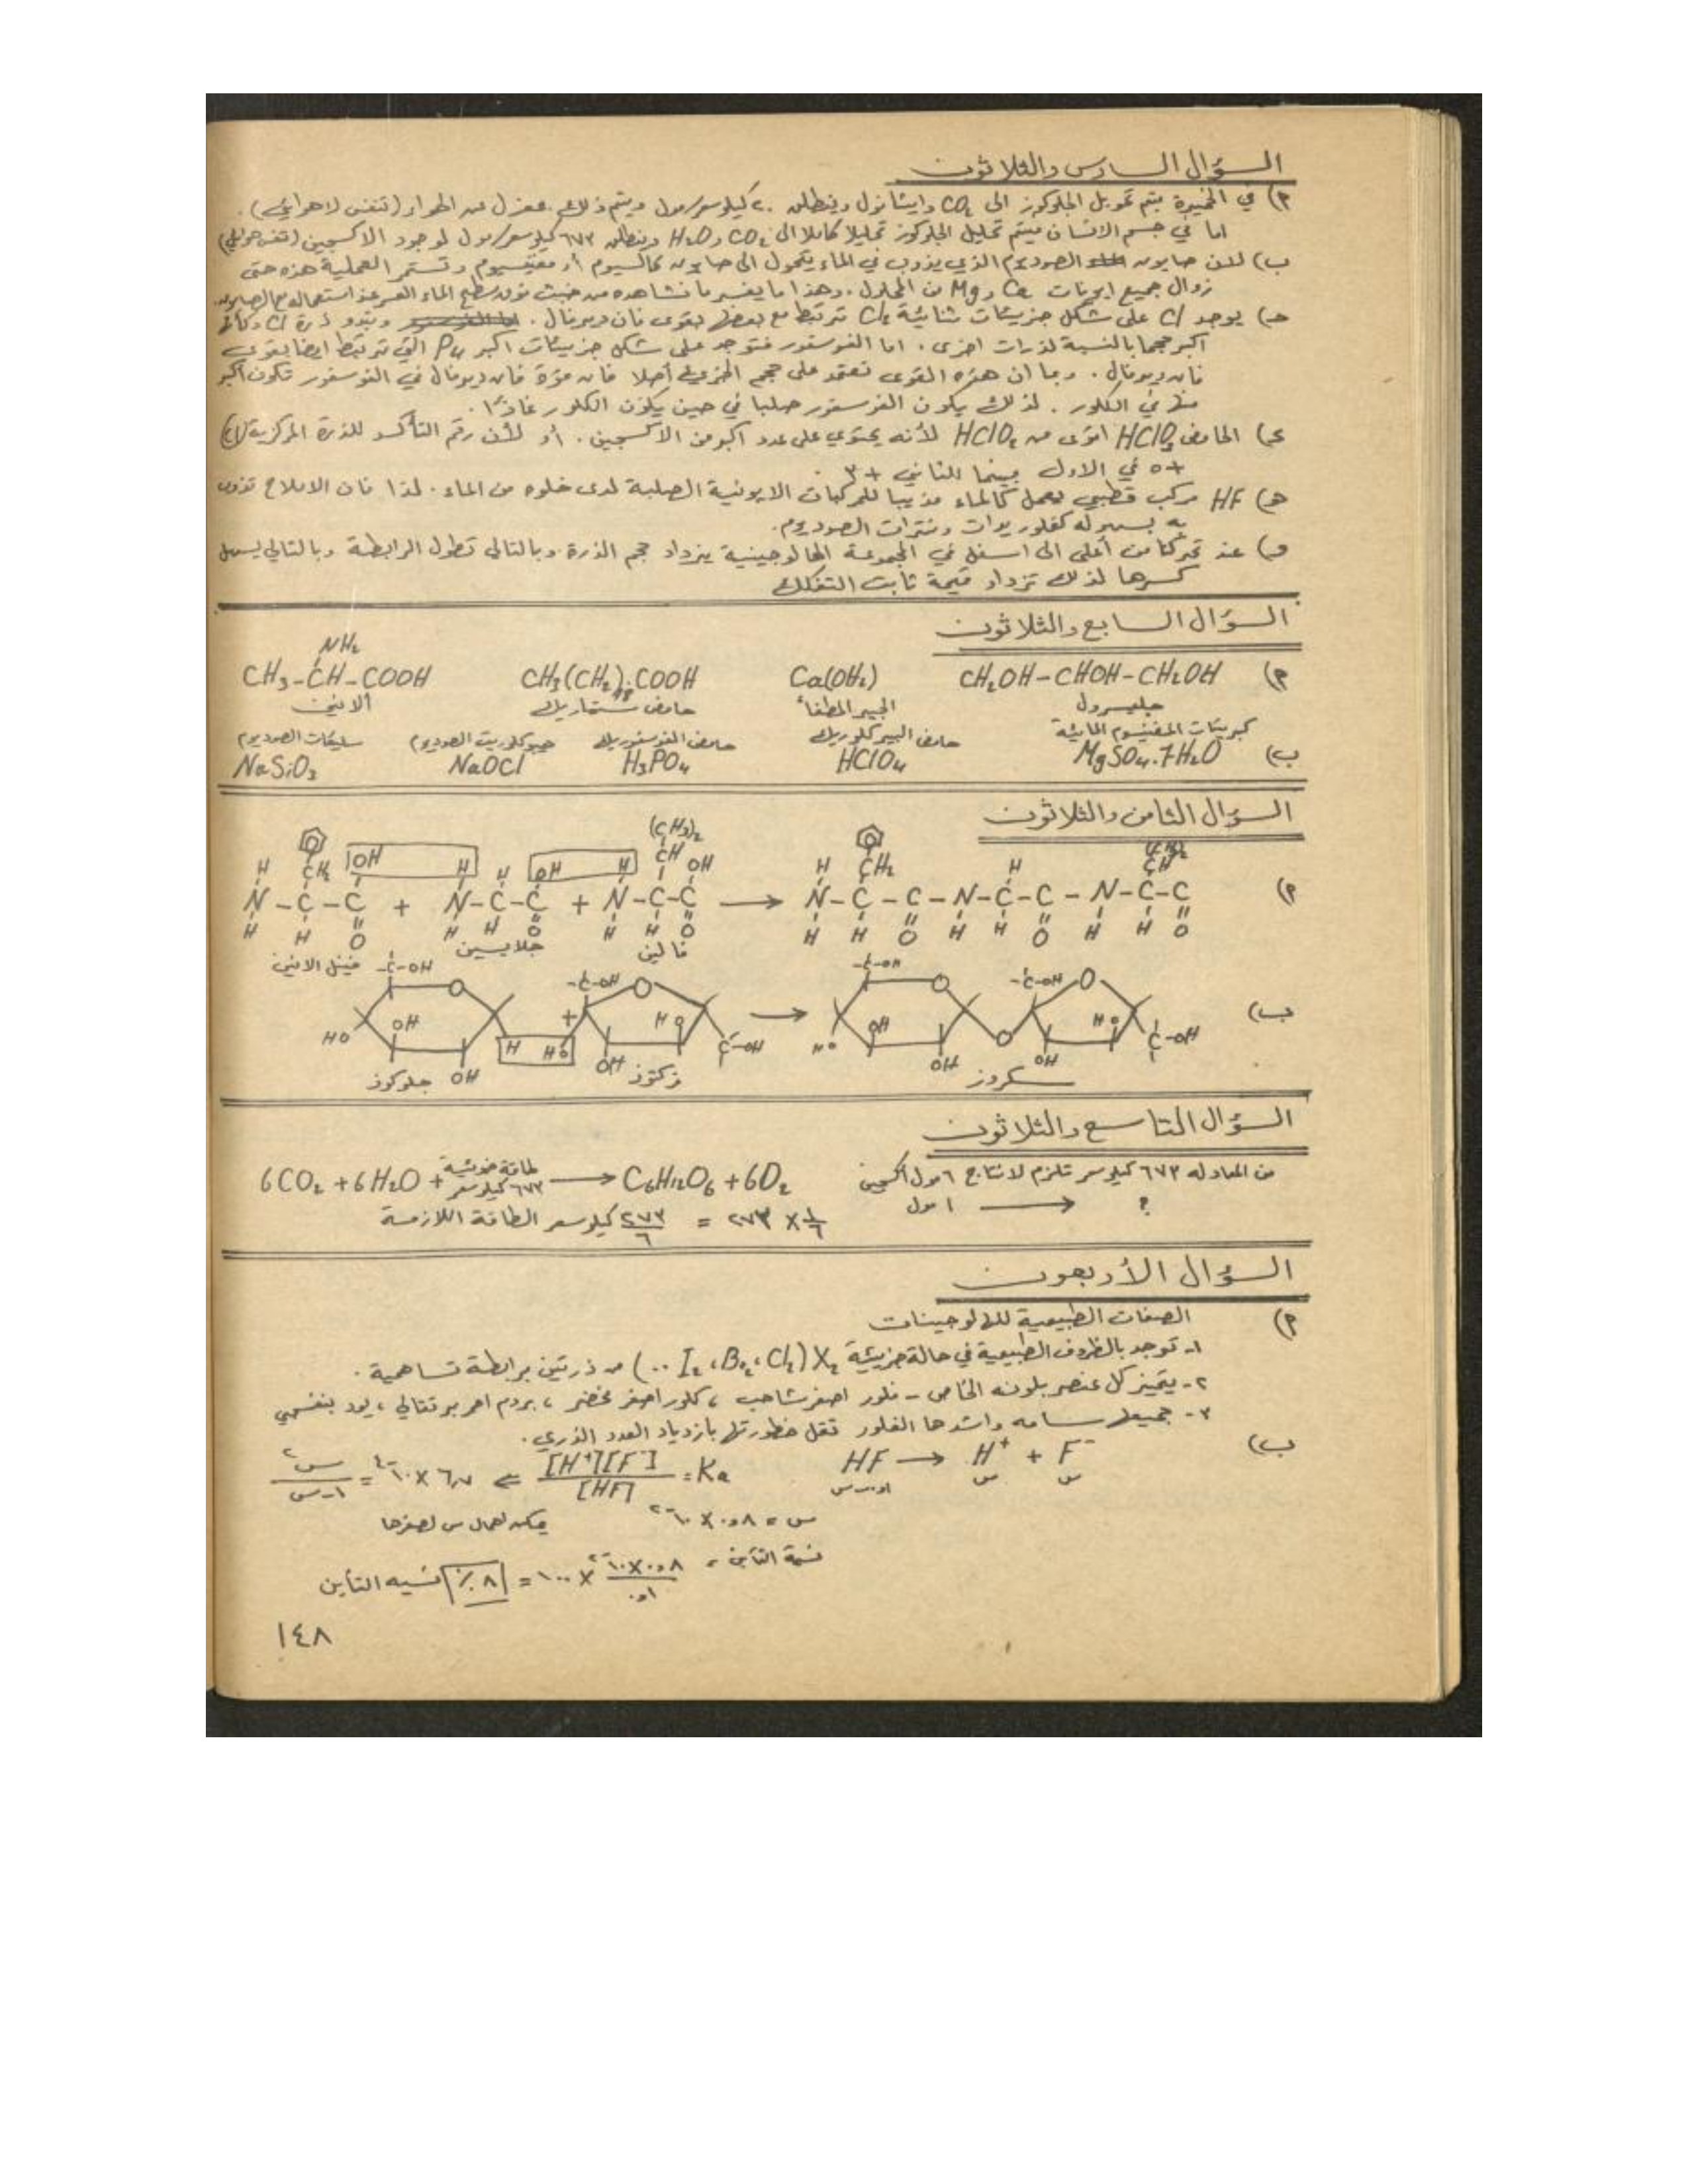 السؤال السادس والثلاثون
أ) في الخميرة يتم تحويل الجلوكوز الى CO2 وايثانول وينطلق ٢٠ كيلو سعر/مول ويتم ذلك بمعزل عن الهواء (تنفس لاهوائي).
اما في جسم الانسان فيتم تحليل الجلوكوز تحليلا كاملا الى CO2 و H2O وينطلق ٦٧٣ كيلو سعر/مول لوجود الاكسجين (تنفس هوائي)
ب) لان صابون الصوديوم الذي يذوب في الماء يتحول الى صابون كالسيوم أو مغنيسيوم وتستمر العملية هذه حتى
زوال جميع ايونات Ca و Mg من المحلول. وهذا ما يفسر ما نشاهده من خبث فوق سطح الماء العسر عند استعماله مع الصابون.
حـ) يوجد Cl على شكل جزيئات ثنائية Cl2 ترتبط مع بعضها بقوى فان ديرفال. وتبدو ذرة Cl وكأنها
اكبر حجما بالنسبة لذرات اخرى. اما الفوسفور فتوجد على شكل جزيئات اكبر P4 التي ترتبط ايضا بقوى
فان ديرفال. وبما ان هذه القوى تعتمد على حجم الجزيء أصلا فان قوة فان ديرفال في الفوسفور تكون اكبر
منها في الكلور. لذلك يكون الفوسفور صلبا في حين يكون الكلور غازا.
ء) الحامض HClO3 اقوى من HClO2 لأنه يحتوي على عدد اكبر من الاكسجين. أو لأن رقم التأكسد للذرة المركزية (Cl)
+٥ في الاول بينما للثاني +٣.
هـ) HF مركب قطبي يعمل كالماء مذيبا للمركبات الايونية الصلبة لدى خلوه من الماء. لذا فان الاملاح تذوب
به بسهوله كفلوريدات ونترات الصوديوم.
و) عند تحركنا من أعلى الى اسفل في المجموعة الهالوجينية يزداد حجم الذرة وبالتالي تطول الرابطة وبالتالي يسهل
كسرها لذلك تزداد قيمة ثابت التفكك
السؤال السابع والثلاثون
NH2
أ) CH2OH-CHOH-CH2OH Ca(OH2) CH3(CH2)16COOH CH3-CH-COOH
جليسرول الجير المطفأ حامض ستياريك ألانين
كبريتات المغنيسيوم المائية حامض البيركلوريك حامض الفوسفوريك هيبوكلوريت الصوديوم سليكات الصوديوم
ب) MgSO4.7H2O HClO4 H3PO4 NaOCl NaSiO3
السؤال الثامن والثلاثون
(CH3)2
H CH2 OH H H OH H CH OH H CH2 H CH
أ) N-C-C + N-C-C + N-C-C → N-C-C-N-C-C-N-C-C
H H O H H O H H O H H O H H O H H O
فينيل الانين جلايسين فالين
-C-OH -C-OH -C-OH -C-OH
ب) HO OH H HO HO C-OH + → HO OH HO C-OH
OH OH OH OH
جلوكوز فركتوز سكروز
السؤال التاسع والثلاثون
من المعادله ٦٧٣ كيلو سعر تلزم لانتاج ٦ مول أكسجين
? ← ١ مول
6CO2 + 6H2O + طاقة ضوئية ٦٧٣ كيلو سعر → C6H12O6 + 6O2
١/٦ × ٦٧٣ = ٦٧٣/٦ كيلو سعر الطاقة اللازمة
السؤال الأربعون
أ) الصفات الطبيعية للهالوجينات
١- توجد بالظروف الطبيعية في حالة جزيئية X2 (Cl2، Br2، I2 ..) من ذرتين برابطة تساهمية.
٢- يتميز كل عنصر بلونه الخاص - فلور اصفر شاحب، كلور اصفر مخضر، بروم احمر برتقالي، يود بنفسجي
٣- جميعها سامه واشدها الفلور تقل خطورتها بازدياد العدد الذري.
ب) HF → H+ + F-
س س
Ka = [H+][F-]/[HF] ⇐ ٦٫٧ × ١٠-٤ = س٢/٠٫١-س
س = ٠٫٨ × ١٠-٢ يمكن اهمال س لصغرها
نسبة التأين = ٠٫٨×١٠-٢/٠٫١ × ١٠٠ = ٨٪ نسبه التأين
١٤٨